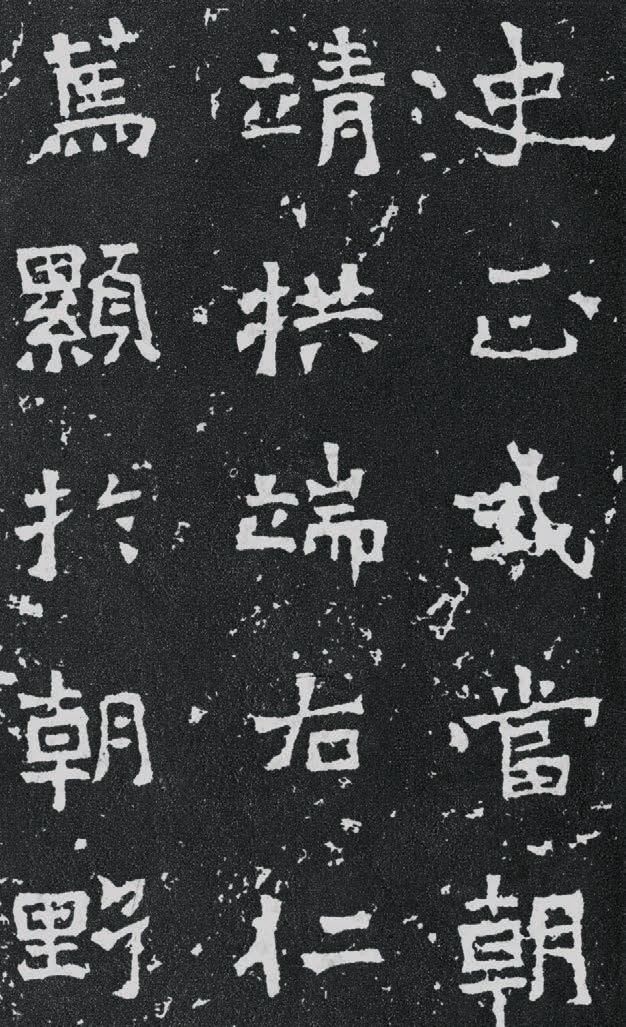 史或當朝
靖拱端右仁
篤顯於朝野